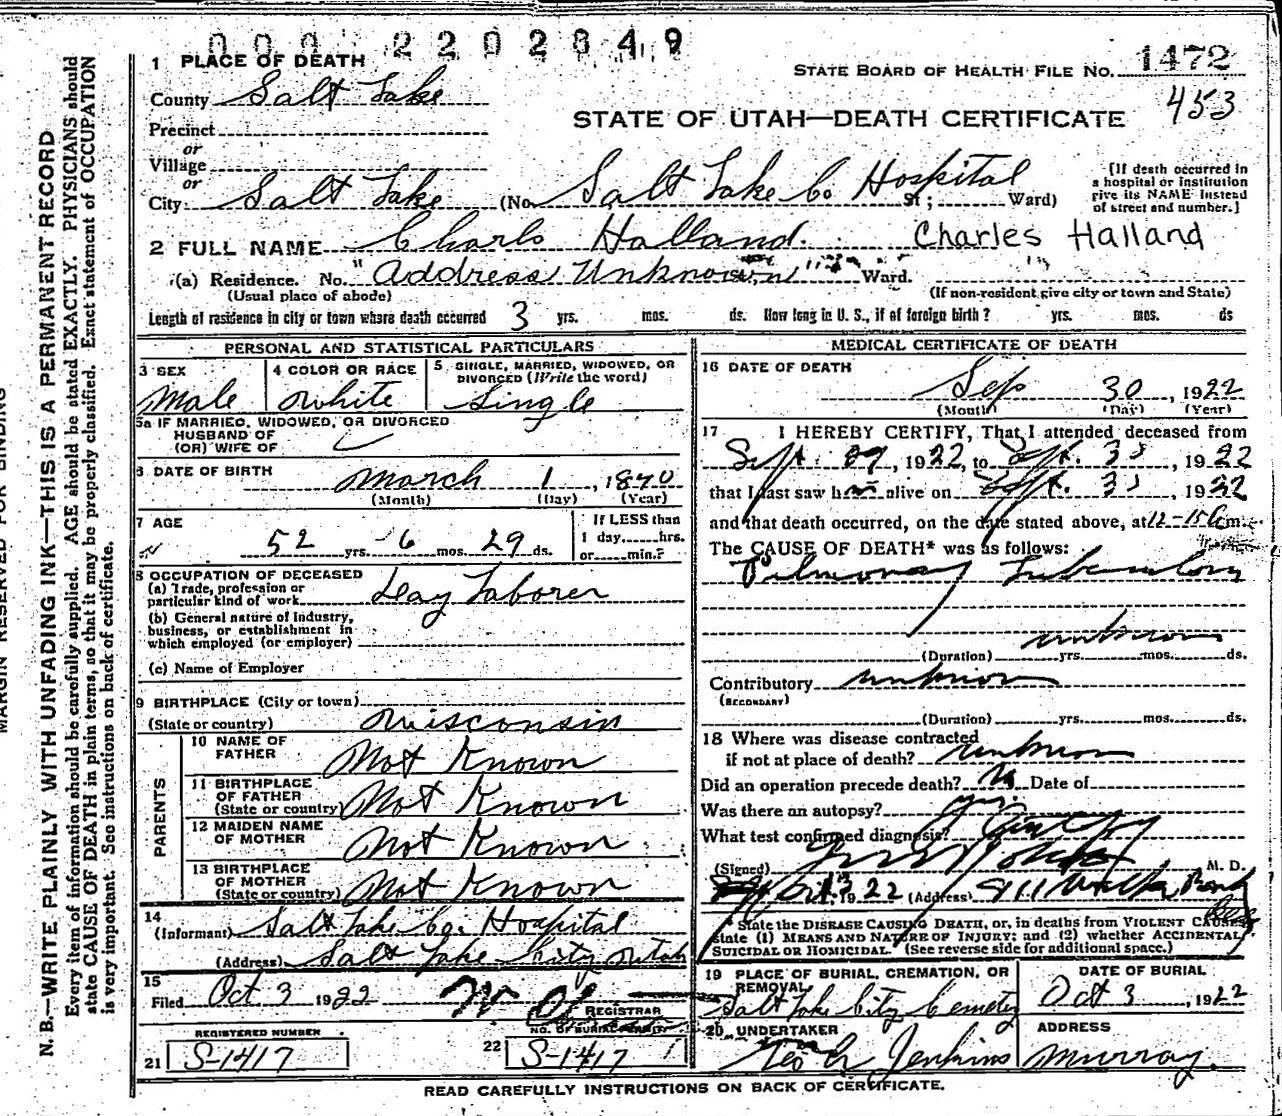 000 2202849
1 PLACE OF DEATH
STATE BOARD OF HEALTH FILE NO. 1472
County Salt Lake
453
STATE OF UTAH—DEATH CERTIFICATE
Precinct
or
Village
or
City Salt Lake (No. Salt Lake Co. Hospital St; Ward)
[If death occurred in
a hospital or institution
give its NAME instead
of street and number.]
2 FULL NAME Charls Halland. Charles Halland
(a) Residence. No. "Address Unknown" Ward.
(Usual place of abode) (If non-resident give city or town and State)
Length of residence in city or town where death occurred 3 yrs. mos. ds. How long in U. S., if of foreign birth? yrs. mos. ds
PERSONAL AND STATISTICAL PARTICULARS
3 SEX
Male
4 COLOR OR RACE
White
5 SINGLE, MARRIED, WIDOWED, OR
DIVORCED (Write the word)
Single
5a IF MARRIED, WIDOWED, OR DIVORCED
HUSBAND OF
(OR) WIFE OF
6 DATE OF BIRTH March 1, 1870
(Month) (Day) (Year)
7 AGE
52 yrs. 6 mos. 29 ds.
If LESS than
1 day hrs.
or min.?
8 OCCUPATION OF DECEASED
(a) Trade, profession or
particular kind of work Day Laborer
(b) General nature of Industry,
business, or establishment in
which employed (or employer)
(c) Name of Employer
9 BIRTHPLACE (City or town)
(State or country) Wisconsin
PARENTS
10 NAME OF
FATHER Not Known
11 BIRTHPLACE
OF FATHER
(State or country) Not Known
12 MAIDEN NAME
OF MOTHER Not Known
13 BIRTHPLACE
OF MOTHER
(State or country) Not Known
14
(Informant) Salt Lake Co. Hospital
(Address) Salt Lake City Utah
15
Filed Oct 3 1922
REGISTRAR
REGISTERED NUMBER
21 S-1417
NO. OF BURIAL PERMIT
22 S-1417
MEDICAL CERTIFICATE OF DEATH
16 DATE OF DEATH
Sep 30, 1922
(Month) (Day) (Year)
17 I HEREBY CERTIFY, That I attended deceased from
Sept. 29, 1922, to Sept. 30, 1922
that I last saw him alive on Sept. 30, 1922
and that death occurred, on the date stated above, at 12-15 a m.
The CAUSE OF DEATH* was as follows:
Pulmonary Tuberculosis
unknown
(Duration) yrs. mos. ds.
Contributory unknown
(SECONDARY)
(Duration) yrs. mos. ds.
18 Where was disease contracted
if not at place of death? unknown
Did an operation precede death? No Date of
Was there an autopsy? yes
What test confirmed diagnosis? Autopsy
(Signed) M. D.
1922 (Address) 911 Walker Bank
Bldg
* State the DISEASE CAUSING DEATH, or, in deaths from VIOLENT CAUSES,
state (1) MEANS AND NATURE OF INJURY; and (2) whether ACCIDENTAL,
SUICIDAL OR HOMICIDAL. (See reverse side for additional space.)
19 PLACE OF BURIAL, CREMATION, OR
REMOVAL
Salt Lake City Cemetery
DATE OF BURIAL
Oct 3, 1922
20 UNDERTAKER
Geo A Jenkins
ADDRESS
Murray.
READ CAREFULLY INSTRUCTIONS ON BACK OF CERTIFICATE.
MARGIN RESERVED FOR BINDING
N. B.—WRITE PLAINLY WITH UNFADING INK—THIS IS A PERMANENT RECORD
Every item of information should be carefully supplied. AGE should be stated EXACTLY. PHYSICIANS should
state CAUSE OF DEATH in plain terms, so that it may be properly classified. Exact statement of OCCUPATION
is very important. See instructions on back of certificate.